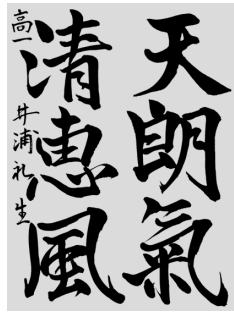 天朗氣
清恵風
高一 井浦礼生